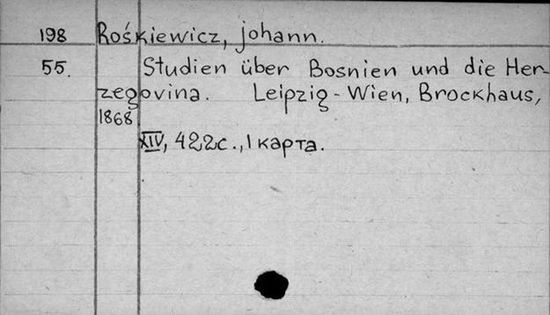 198 Rośkiewicz, johann.
55. Studien über Bosnien und die Her-
zegovina. Leipzig-Wien, Brockhaus,
1868
XIV, 422с., 1 карта.